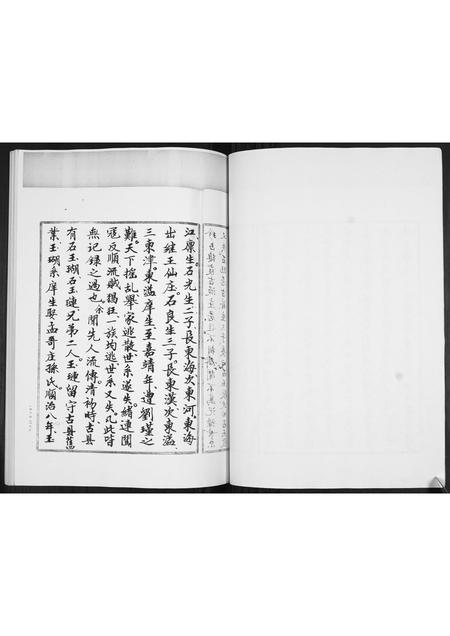 江禀生石光生二子長東海次東河東海
出继王仙庄石良生三子長東漢次東溢
三東津東溢庠生至嘉靖年遭劉瑾之
難天下摇乱舉家逃散世系遂失緒連闖
寇反順流贼猖狂一族均逃世系又失凡此皆
無记録之過也余聞先人流傳清初時古县
有石玉瑚石玉璉兄弟二人玉璉留守古县舊
業玉瑚系庠生娶孟哥庄孫氏順治八年玉